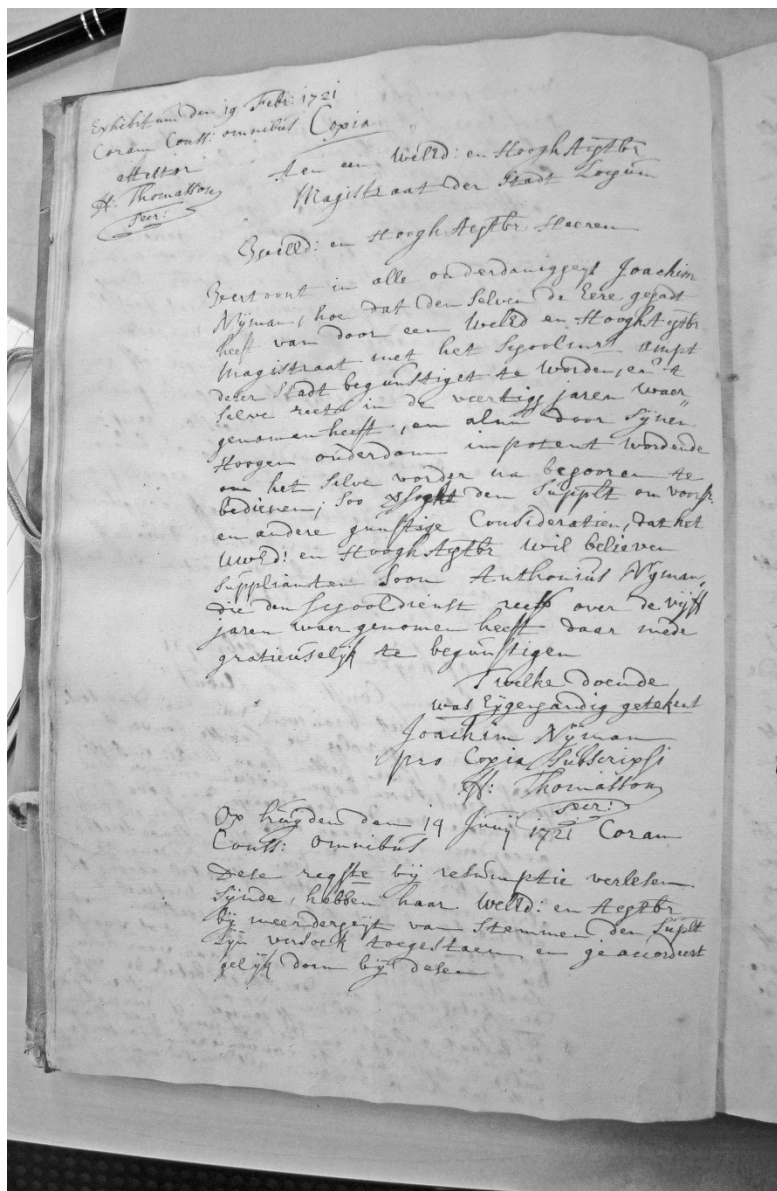 Exhibitum den 19 Febr: 1721
Coram Conss: omnibus
attestor
H: Thomasson
secr:
Copia
Aen een Wélld: en Hoogh Agtbr
Magistraat der Stadt Logum
Gweld: en Hoogh Agtbr Heeren
Vertoont in alle onderdaniggeyt Joachim
Nijman, hoe dat den selven de Eere gehadt
heeft van door een Welld en Hoogh Agtbr
Magistraat met het Scoolmrs ampt
deser Stadt begunstiget te worden, en 't
selve reets in de veertigh jaren waer„
genomen heeft, en alnu door sijnen
Hoogen ouderdom impotent wordende
om het selve vorder na begooren te
bedienen; soo den Supplt om voorsz:
en andere gunstige Consideratien, dat het
UwEd: en Hoogh Agtbr wil believen
Suppliants Soon Anthonius Nijman,
die den Scooldienst reets over de vijff
jaren waergenomen heeft daar mede
gratieuselijk te begunstigen
'T welke doende
was Eijgengandig getekent
Joachim Nijman
pro Copia Subscripsi
H: Thomasson
secr:
Op huyden den 14 Junij 1721 Coram
Conss: omnibus
Dese reqste bij resumptie verlesen
sijnde, hebben haar Welld: en Agtbr
bij meerdergeijt van Stemmen den Supplt
sijn versoek toegestaen en geaccordeert
gelijk doen bij desen